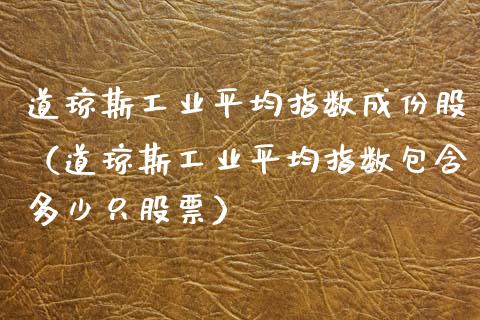 道琼斯工业平均指数成份股
（道琼斯工业平均指数包含
多少只股票）